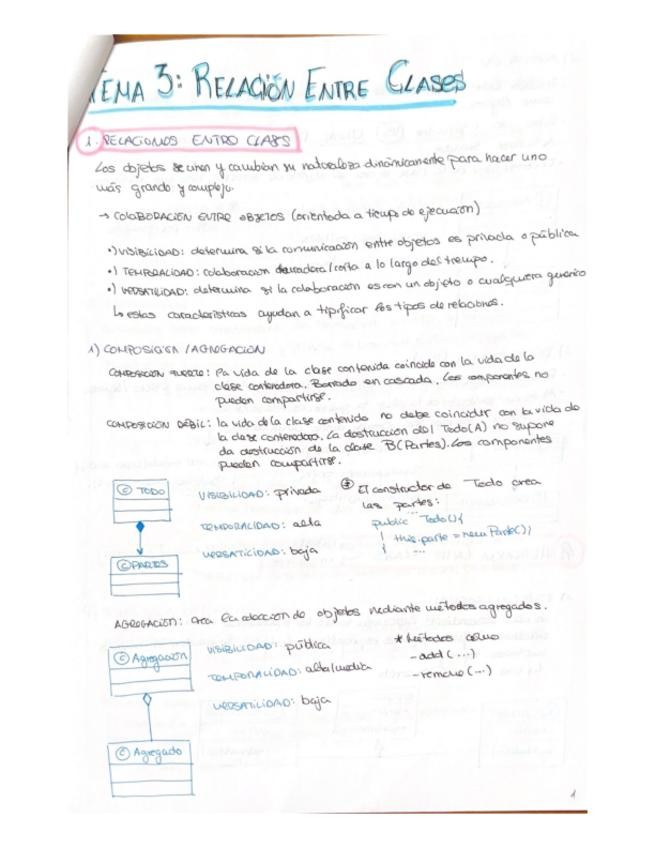 TEMA 3: RELACIÓN ENTRE CLASES
1. RELACIONES ENTRE CLASES
Los objetos se unen y cambian su naturaleza dinámicamente para hacer uno
más grande y complejo.
→ COLABORACIÓN ENTRE OBJETOS (orientada a tiempo de ejecución)
•) VISIBILIDAD: determina si la comunicación entre objetos es privada o pública
•) TEMPORALIDAD: colaboración duradera/corta a lo largo del tiempo.
•) VERSATILIDAD: determina si la colaboración es con un objeto o cualquiera generico
↳ estas características ayudan a tipificar los tipos de relaciones.
1) COMPOSICIÓN / AGREGACIÓN
COMPOSICIÓN FUERTE: la vida de la clase contenida coincide con la vida de la
clase contenedora. Borrado en cascada. Los componentes no
pueden compartirse.
COMPOSICIÓN DÉBIL: la vida de la clase contenida no debe coincidir con la vida de
la clase contenedora. La destrucción del Todo(A) no supone
la destrucción de la clase B(Partes). Los componentes
pueden compartirse.
C TODO
C PARTES
VISIBILIDAD: privada
TEMPORALIDAD: alta
VERSATILIDAD: baja
* El constructor de Todo crea
las partes:
public Todo(){
this.parte = new Parte();
...
AGREGACIÓN: crea la colección de objetos mediante métodos agregados.
C Agregación
C Agregado
VISIBILIDAD: pública
TEMPORALIDAD: alta/media
VERSATILIDAD: baja
* Métodos como
- add (...)
- remove (...)
1